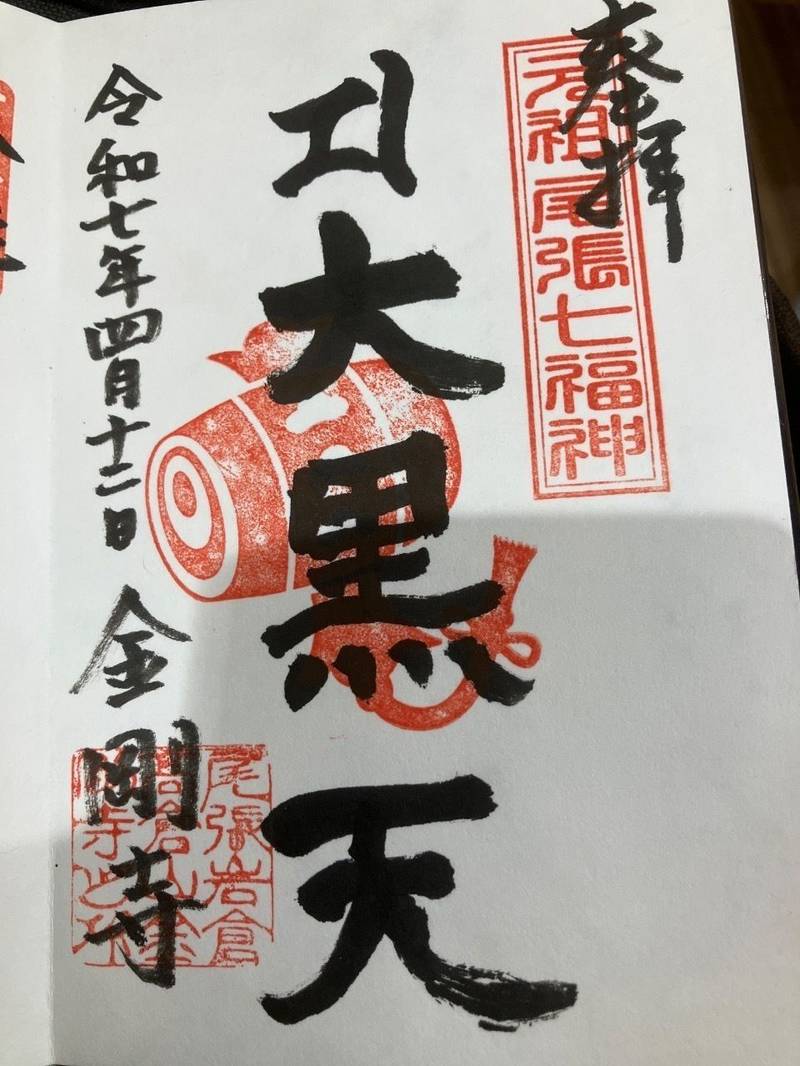 奉拝
元祖尾張七福神
大黒天
令和七年四月十二日 金剛寺
尾張岩倉